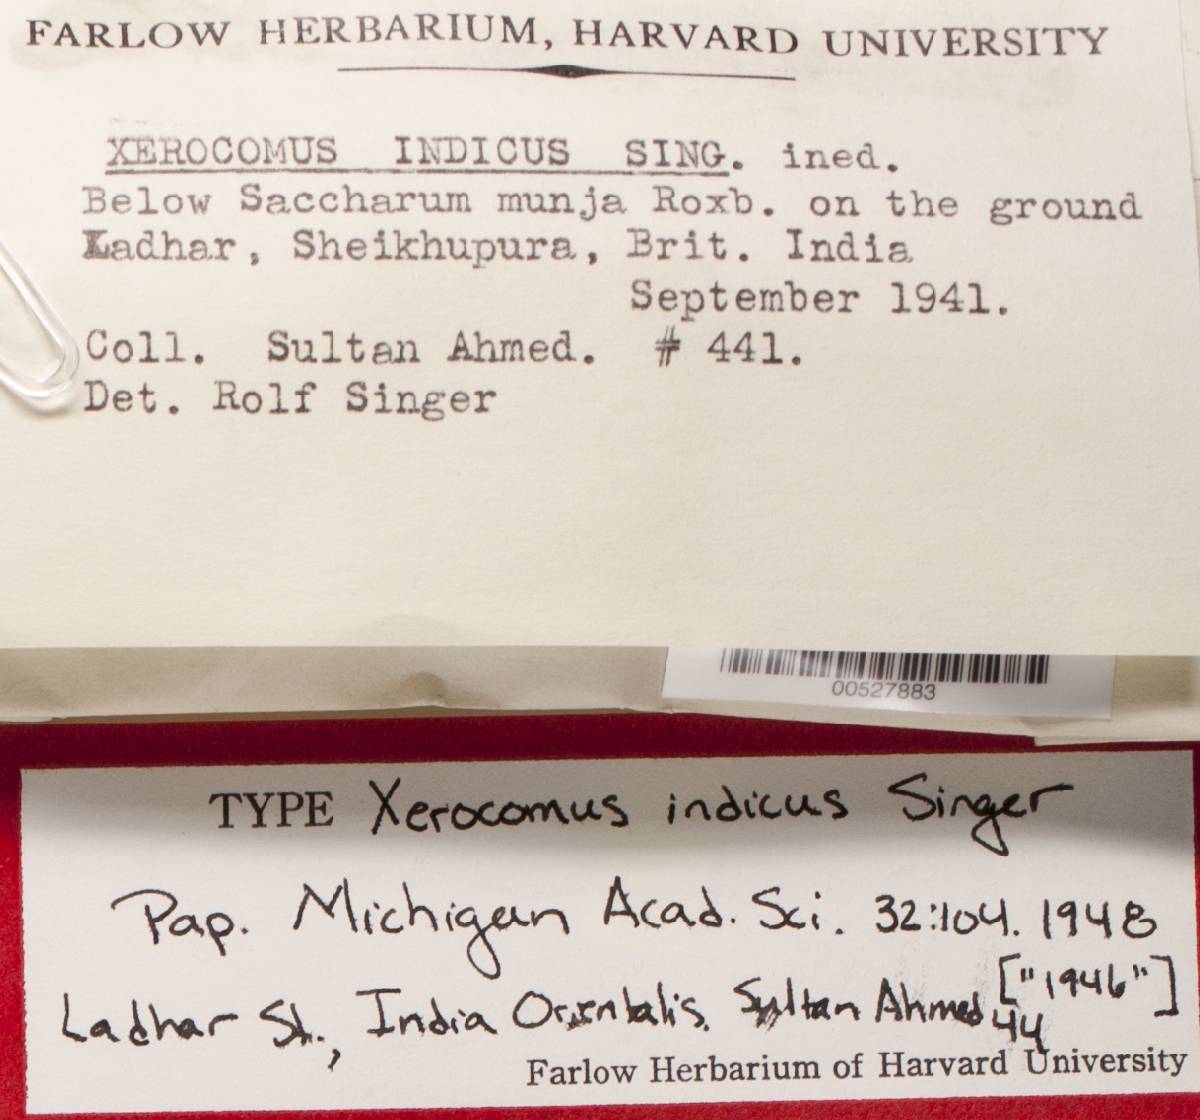 FARLOW HERBARIUM, HARVARD UNIVERSITY
XEROCOMUS INDICUS SING. ined.
Below Saccharum munja Roxb. on the ground
Ladhar, Sheikhupura, Brit. India
September 1941.
Coll. Sultan Ahmed. # 441.
Det. Rolf Singer
00527883
TYPE Xerocomus indicus Singer
Pap. Michigan Acad. Sci. 32:104. 1948
["1946"]
Ladhar St., India Orientalis. Sultan Ahmed 44
Farlow Herbarium of Harvard University